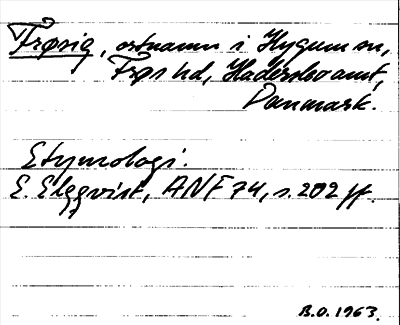 Frøsig, ortnamn i Hygum sn,
Frøs hd, Haderslev amt,
Danmark.
Etymologi.
E. Elgqvist, ANF 74, s. 202 ff.
B.O. 1963.